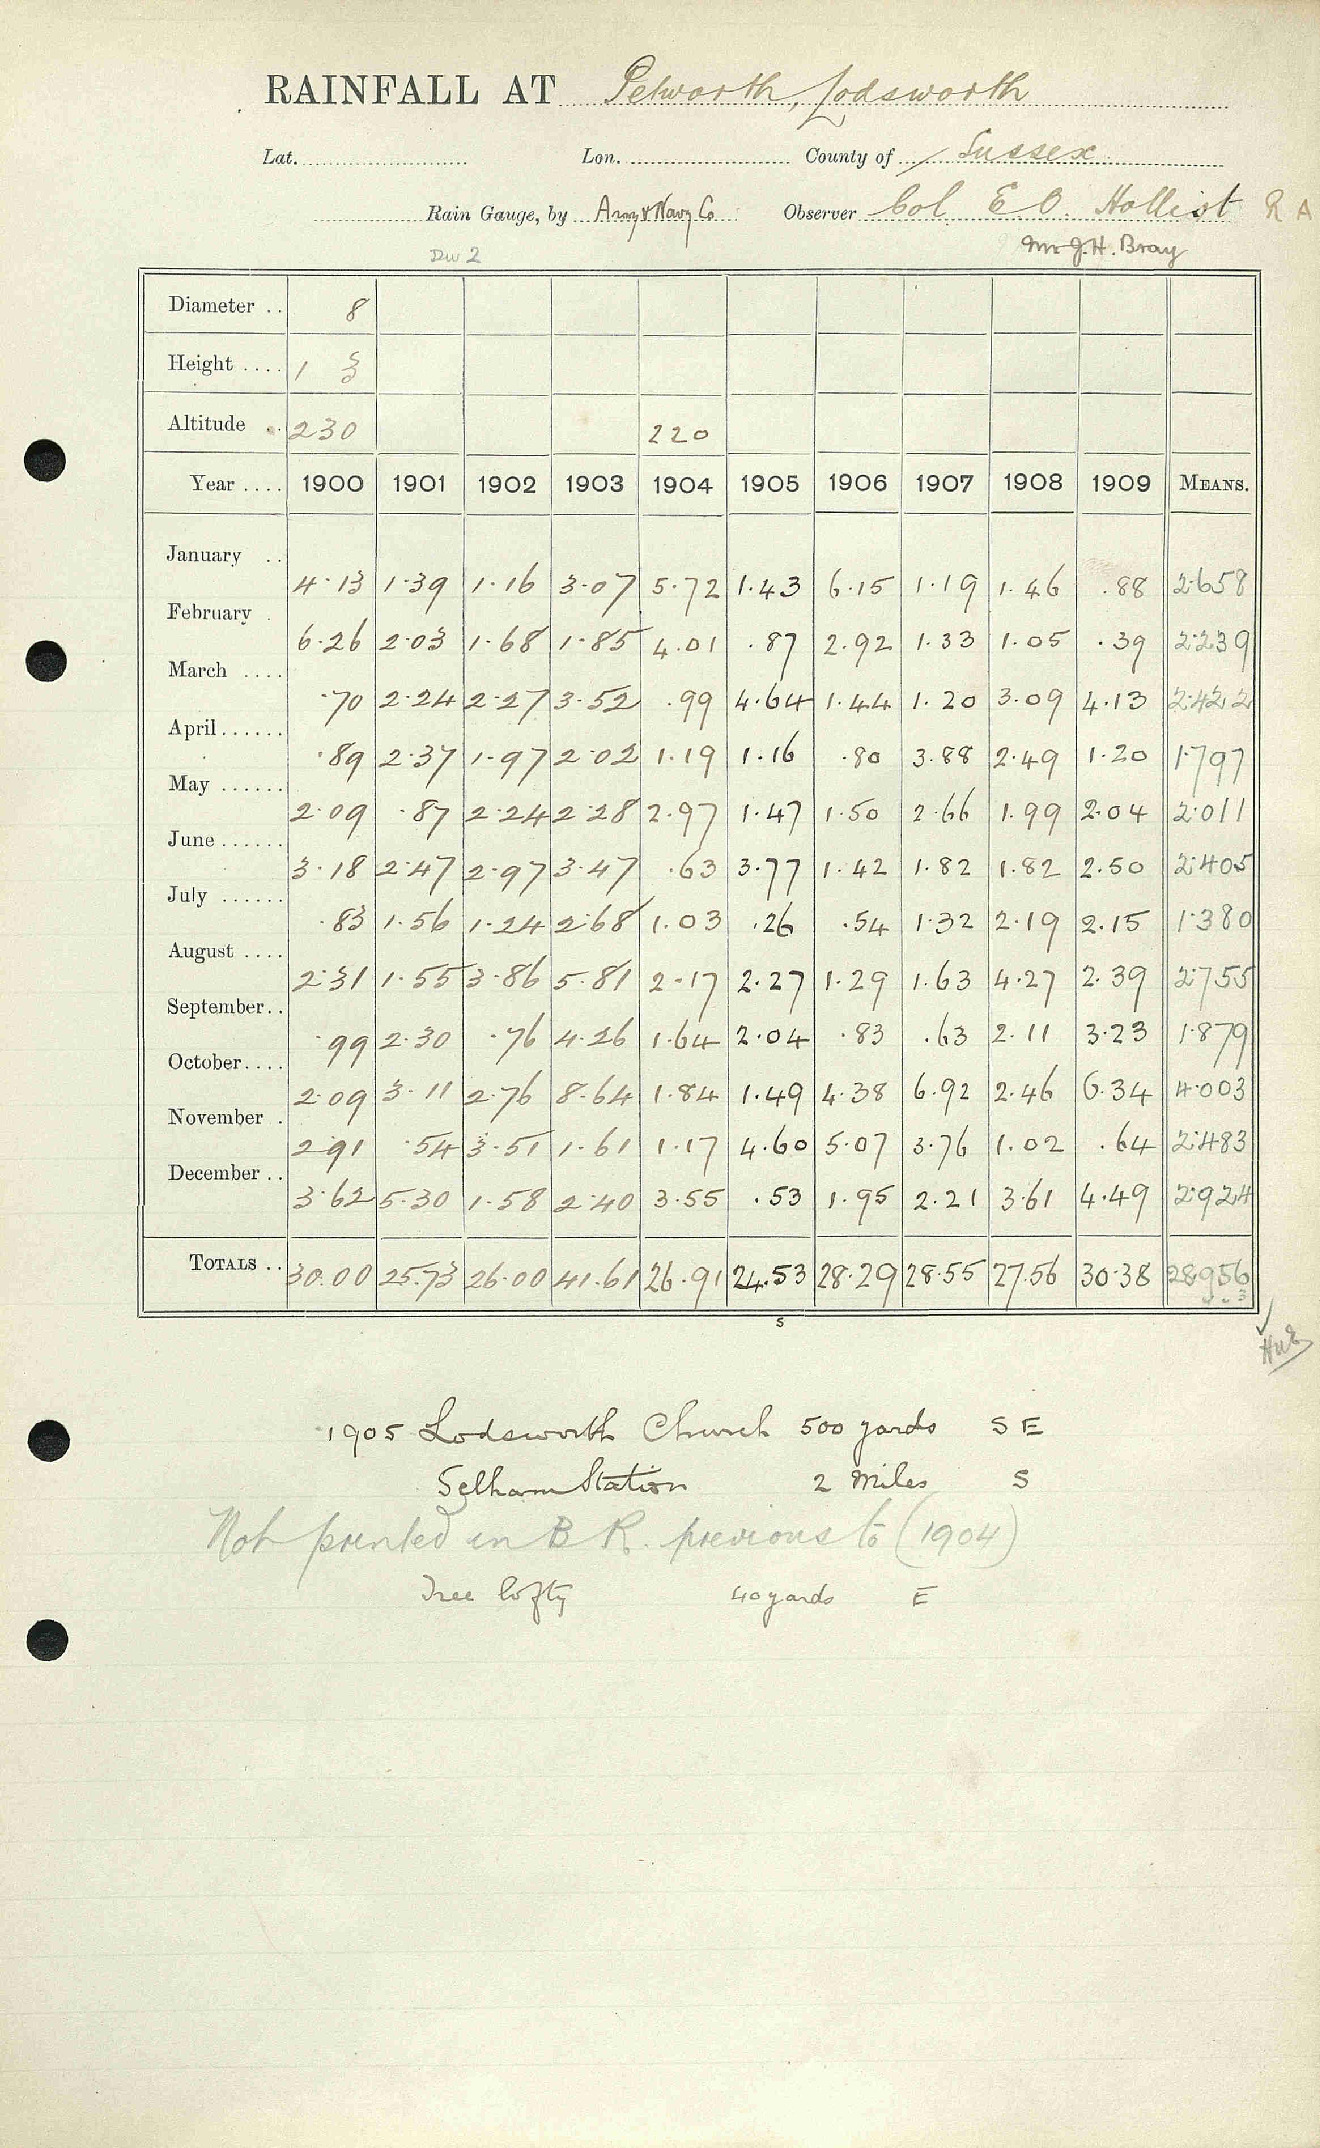 RAINFALL AT Petworth, Lodsworth
Lat. Lon. County of Sussex
Rain Gauge, by Army & Navy Co Observer Col E O. Hollist R A
Mr J.H. Bray
Diameter .. 8
Height .... 1
Altitude .. 230 220
Year .... 1900 1901 1902 1903 1904 1905 1906 1907 1908 1909 MEANS.
January .. 4.13 1.39 1.16 3.07 5.72 1.43 6.15 1.19 1.46 .88 2.658
February . 6.26 2.03 1.68 1.85 4.01 .87 2.92 1.33 1.05 .39 2.239
March .... .70 2.24 2.27 3.52 .99 4.64 1.44 1.20 3.09 4.13 2.422
April ...... .89 2.37 1.97 2.02 1.19 1.16 .80 3.88 2.49 1.20 1.797
May ...... 2.09 .87 2.24 2.28 2.97 1.47 1.50 2.66 1.99 2.04 2.011
June ...... 3.18 2.47 2.97 3.47 .63 3.77 1.42 1.82 1.82 2.50 2.405
July ...... .83 1.56 1.24 2.68 1.03 .26 .54 1.32 2.19 2.15 1.380
August .... 2.31 1.55 3.86 5.81 2.17 2.27 1.29 1.63 4.27 2.39 2.755
September .. .99 2.30 .76 4.26 1.64 2.04 .83 .63 2.11 3.23 1.879
October .... 2.09 3.11 2.76 8.64 1.84 1.49 4.38 6.92 2.46 6.34 4.003
November . 2.91 .54 3.51 1.61 1.17 4.60 5.07 3.76 1.02 .64 2.483
December .. 3.62 5.30 1.58 2.40 3.55 .53 1.95 2.21 3.61 4.49 2.924
TOTALS .. 30.00 25.73 26.00 41.61 26.91 24.53 28.29 28.55 27.56 30.38 28.956
s
1905 Lodsworth Church 500 yards S E
Selham Station 2 Miles S
Not printed in B R. previous to (1904)
Tree lofty 40 yards E